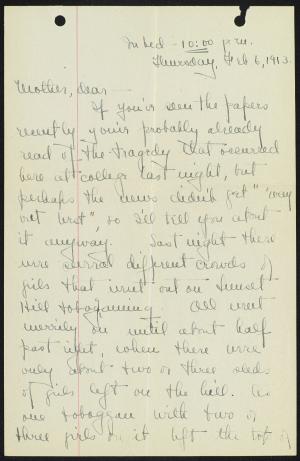 In bed - 10:00 p.m.
Thursday, Feb 6, 1913.
Mother, dear —
If you've seen the papers
recently you've probably already
read of the tragedy that occurred
here at college last night, but
perhaps the news didn't get "away
out west", so I'll tell you about
it anyway. Last night there
were several different crowds of
girls that went out on Sunset
Hill tobogganing. All went
merrily on until about half
past eight, when there were
only about two or three sleds
of girls left on the hill. As
one toboggan with two or
three girls on it left the top of